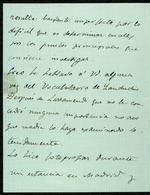 resulta bastante imperfecto por lo
difícil que es determinar cuales
son los puntos principales que
conviene investigar.
he hablado á V. alguna
vez del Vocabulario de Landuchio
Despues de Larramendi que no le con-
cedió ninguna importancia no creo
que nadie lo haya examinado a-
tentamente.
Lo hice fotografiar durante
mi estancia en Madrid y